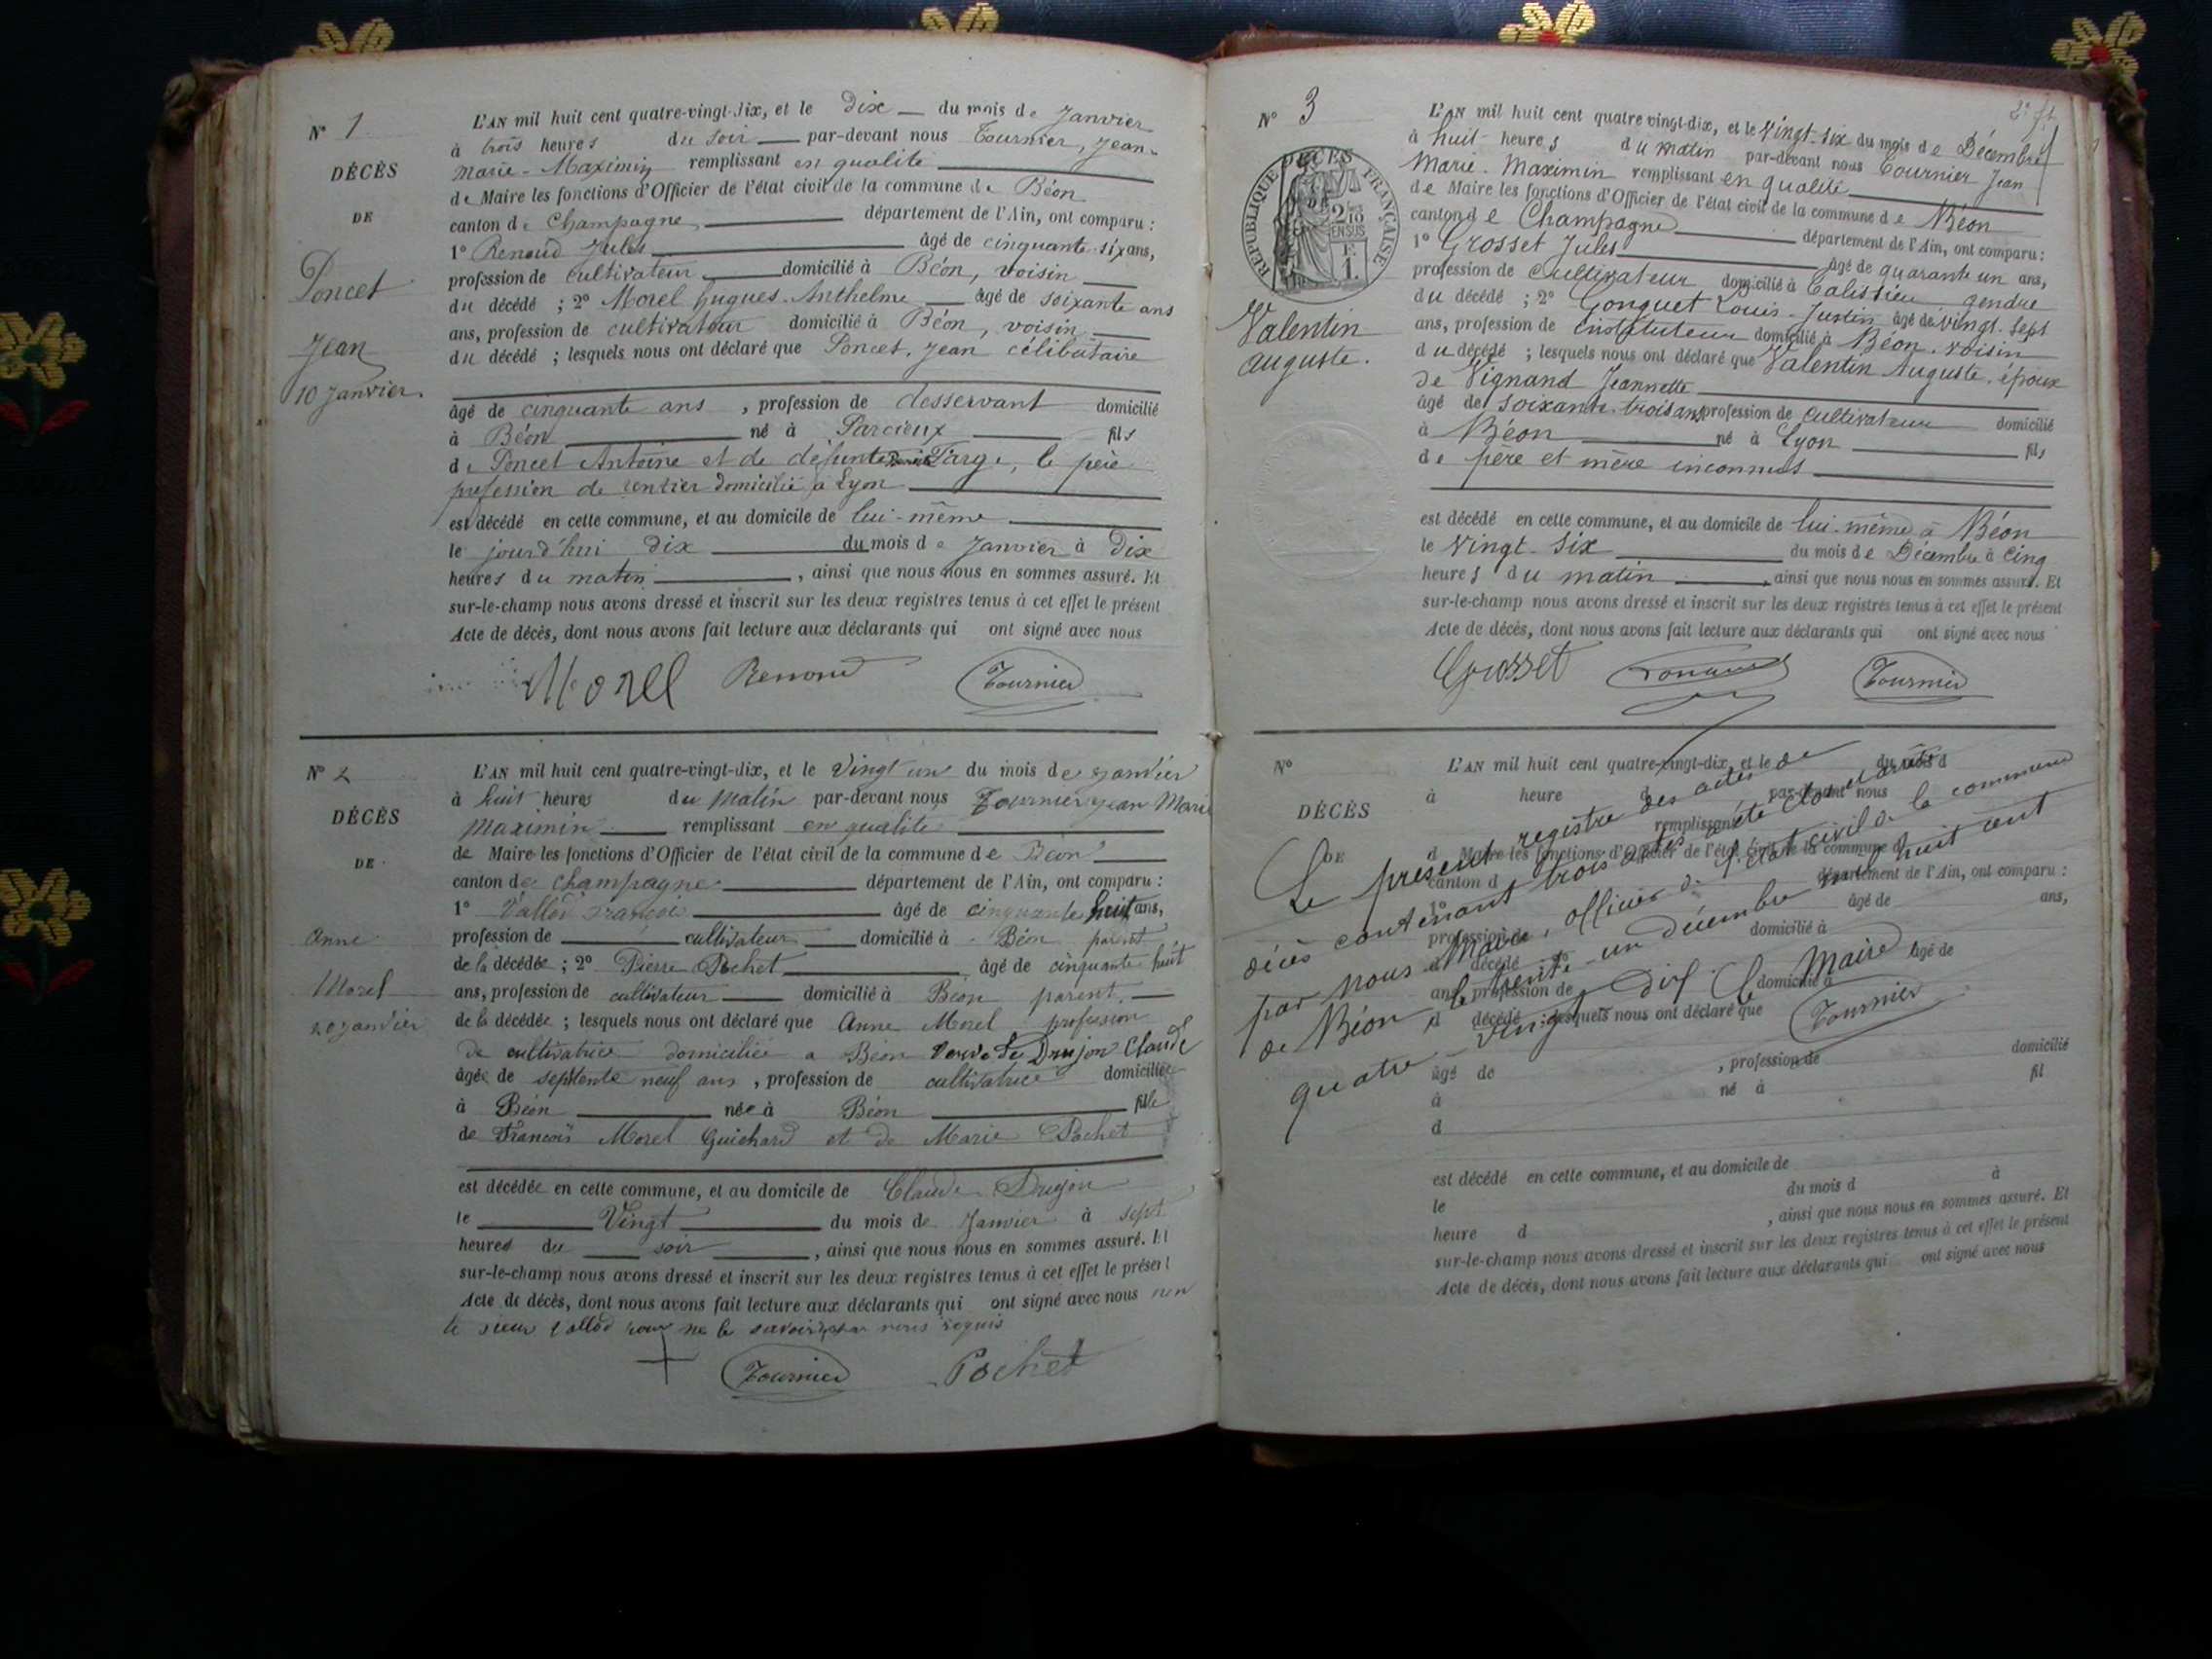 N° 1
DÉCÈS
DE
Poncet
Jean
10 Janvier.
L'AN mil huit cent quatre-vingt-dix, et le dix du mois de Janvier
à trois heures du soir par-devant nous Tournier, Jean-
Marie-Maximin remplissant en qualité
de Maire les fonctions d'Officier de l'état civil de la commune de Béon
canton de Champagne département de l'Ain, ont comparu :
1° Renoud Jules âgé de cinquante-six ans,
profession de cultivateur domicilié à Béon, voisin
du décédé ; 2° Morel Hugues-Anthelme âgé de soixante ans
ans, profession de cultivateur domicilié à Béon, voisin
du décédé ; lesquels nous ont déclaré que Poncet, Jean célibataire
âgé de cinquante ans , profession de desservant domicilié
à Béon né à Parcieux fils
de Poncet Antoine et de défunte Targe, le père
profession de rentier domicilié à Lyon
est décédé en cette commune, et au domicile de lui-même
le jourd'hui dix du mois de Janvier à dix
heures du matin , ainsi que nous nous en sommes assuré. Et
sur-le-champ nous avons dressé et inscrit sur les deux registres tenus à cet effet le présent
Acte de décès, dont nous avons fait lecture aux déclarants qui ont signé avec nous
Morel Renoud Tournier
N° 2
DÉCÈS
DE
Anne
Morel
20 janvier
L'AN mil huit cent quatre-vingt-dix, et le vingt un du mois de janvier
à huit heures du matin par-devant nous Tournier Jean Marie
Maximin remplissant en qualité
de Maire les fonctions d'Officier de l'état civil de la commune de Béon
canton de Champagne département de l'Ain, ont comparu :
1° Vallod François âgé de cinquante huit ans,
profession de cultivateur domicilié à Béon parent
de la décédée ; 2° Pierre Pochet âgé de cinquante huit
ans, profession de cultivateur domicilié à Béon parent
de la décédée ; lesquels nous ont déclaré que Anne Morel profession
de cultivatrice domiciliée a Béon veuve de Drujon Claude
âgée de septente neuf ans , profession de cultivatrice domiciliée
à Béon née à Béon fille
de François Morel Guichard et de Marie Pochet
est décédée en cette commune, et au domicile de Claude Drujon
le Vingt du mois de Janvier à sept
heures du soir , ainsi que nous nous en sommes assuré. Et
sur-le-champ nous avons dressé et inscrit sur les deux registres tenus à cet effet le présent
Acte de décès, dont nous avons fait lecture aux déclarants qui ont signé avec nous non
le sieur Vallod pour ne le savoir de ce requis
Tournier Pochet
2e ft
N° 3
DÉCÈS
RÉPUBLIQUE FRANÇAISE
2/10
EN SUS
F.
1.
Valentin
Auguste.
L'AN mil huit cent quatre vingt-dix, et le vingt-six du mois de Décembre
à huit heures du matin par-devant nous Tournier Jean
Marie-Maximin remplissant en qualité
de Maire les fonctions d'Officier de l'état civil de la commune de Béon
canton de Champagne département de l'Ain, ont comparu :
1° Grosset Jules âgé de quarante un ans,
profession de cultivateur domicilié à Talissieu gendre
du décédé ; 2° Conquet Louis-Justin âgé de vingt-sept
ans, profession de Instituteur domicilié à Béon, voisin
du décédé ; lesquels nous ont déclaré que Valentin Auguste, époux
de Vignand Jeannette
âgé de soixante-trois ans, profession de cultivateur domicilié
à Béon né à Lyon fils
de père et mère inconnus
est décédé en cette commune, et au domicile de lui-même à Béon
le vingt-six du mois de Décembre à cinq
heures du matin , ainsi que nous nous en sommes assuré. Et
sur-le-champ nous avons dressé et inscrit sur les deux registres tenus à cet effet le présent
Acte de décès, dont nous avons fait lecture aux déclarants qui ont signé avec nous
Grosset Conquet Tournier
N°
DÉCÈS
DE
L'AN mil huit cent quatre-vingt-dix, et le du mois d
à heure d par-devant nous
remplissant
d Maire les fonctions d'Officier de l'état civil de la commune d
canton d département de l'Ain, ont comparu :
1° âgé de ans,
profession de domicilié à
d décédé ; 2° âgé de
ans, profession de domicilié à
d décédé ; lesquels nous ont déclaré que
âgé de , profession de domicilié
à né à fil
d
est décédé en cette commune, et au domicile de
le du mois d à
heure d , ainsi que nous nous en sommes assuré. Et
sur-le-champ nous avons dressé et inscrit sur les deux registres tenus à cet effet le présent
Acte de décès, dont nous avons fait lecture aux déclarants qui ont signé avec nous
Le présent registre des actes de
décès contenant trois actes a été clos et arrêté
par nous Maire, officier de l'état civil de la commune
de Béon, le trente-un décembre mil huit cent
quatre-vingt-dix. Le Maire
Tournier